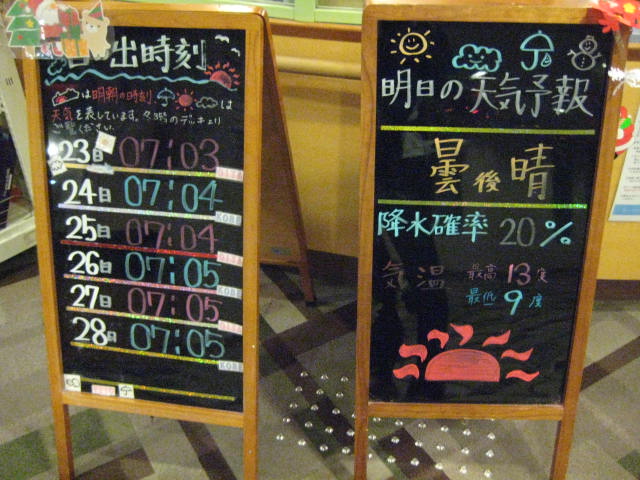 日の出時刻
は明朝の時刻
は
天気を表しています。各3階のデッキより
ご覧ください。
23日 07:03 OITA
24日 07:04 KOBE
25日 07:04 OITA
26日 07:05 KOBE
27日 07:05 OITA
28日 07:05 KOBE
明日の天気予報
曇後晴
降水確率 20%
気温 最高 13度
最低 9度